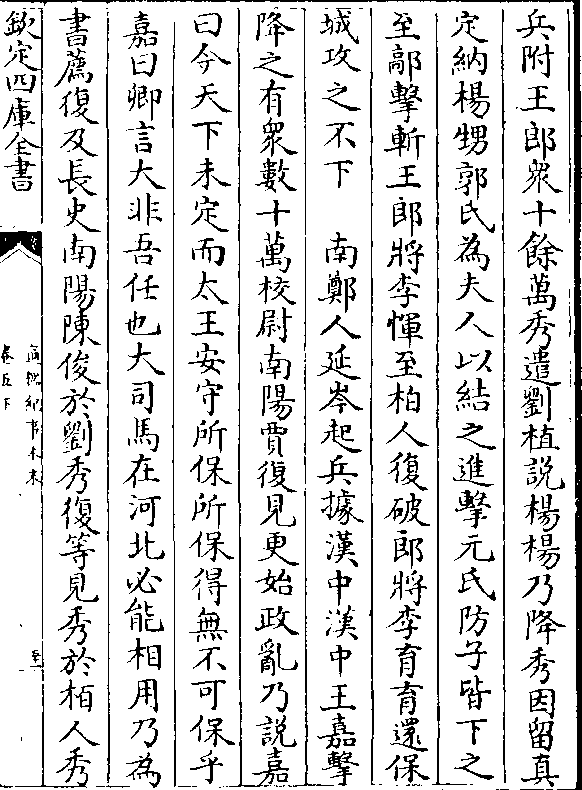 兵附王郎衆十餘萬秀遣劉植說楊楊乃降秀因留真
定納楊甥郭氏為夫人以結之進擊元氏防子皆下之
至鄗擊斬王郎將李惲至柏人復破郎將李育育還保
城攻之不下　南鄭人延岑起兵據漢中漢中王嘉擊
降之有衆數十萬校尉南陽賈復見更始政亂乃說嘉
曰今天下未定而太王安守所保所保得無不可保乎
嘉曰卿言大非吾任也大司馬在河北必能相用乃為
書薦復及長史南陽陳俊於劉秀復等見秀於栢人秀
欽定四庫全書
卷五下